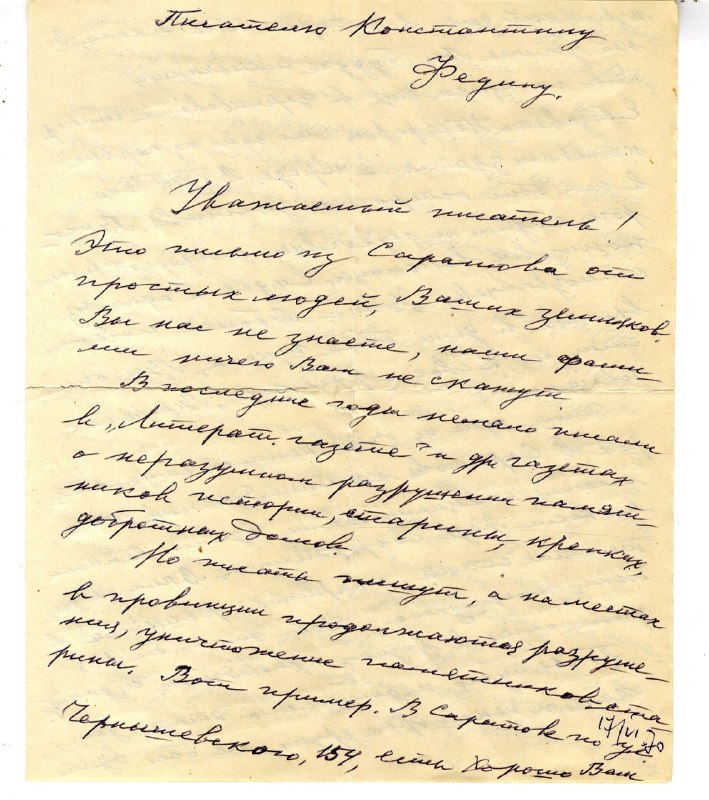 Писателю Константину
Федину.
Уважаемый писатель!
Это письмо из Саратова от
простых людей, Ваших земляков.
Вы нас не знаете, наши фами-
лии ничего Вам не скажут
В последние годы немало писали
в „Литерат. газете" и др. газетах
о неразумном разрушении памят-
ников истории, старины, крепких,
добротных домов.
Но писать пишут, а на местах
в провинции продолжаются разруше-
ния, уничтожение памятников ста
рины. Вот пример. В Саратове по ул.
17/VI 70
Чернышевского, 154, есть хорошо Вам